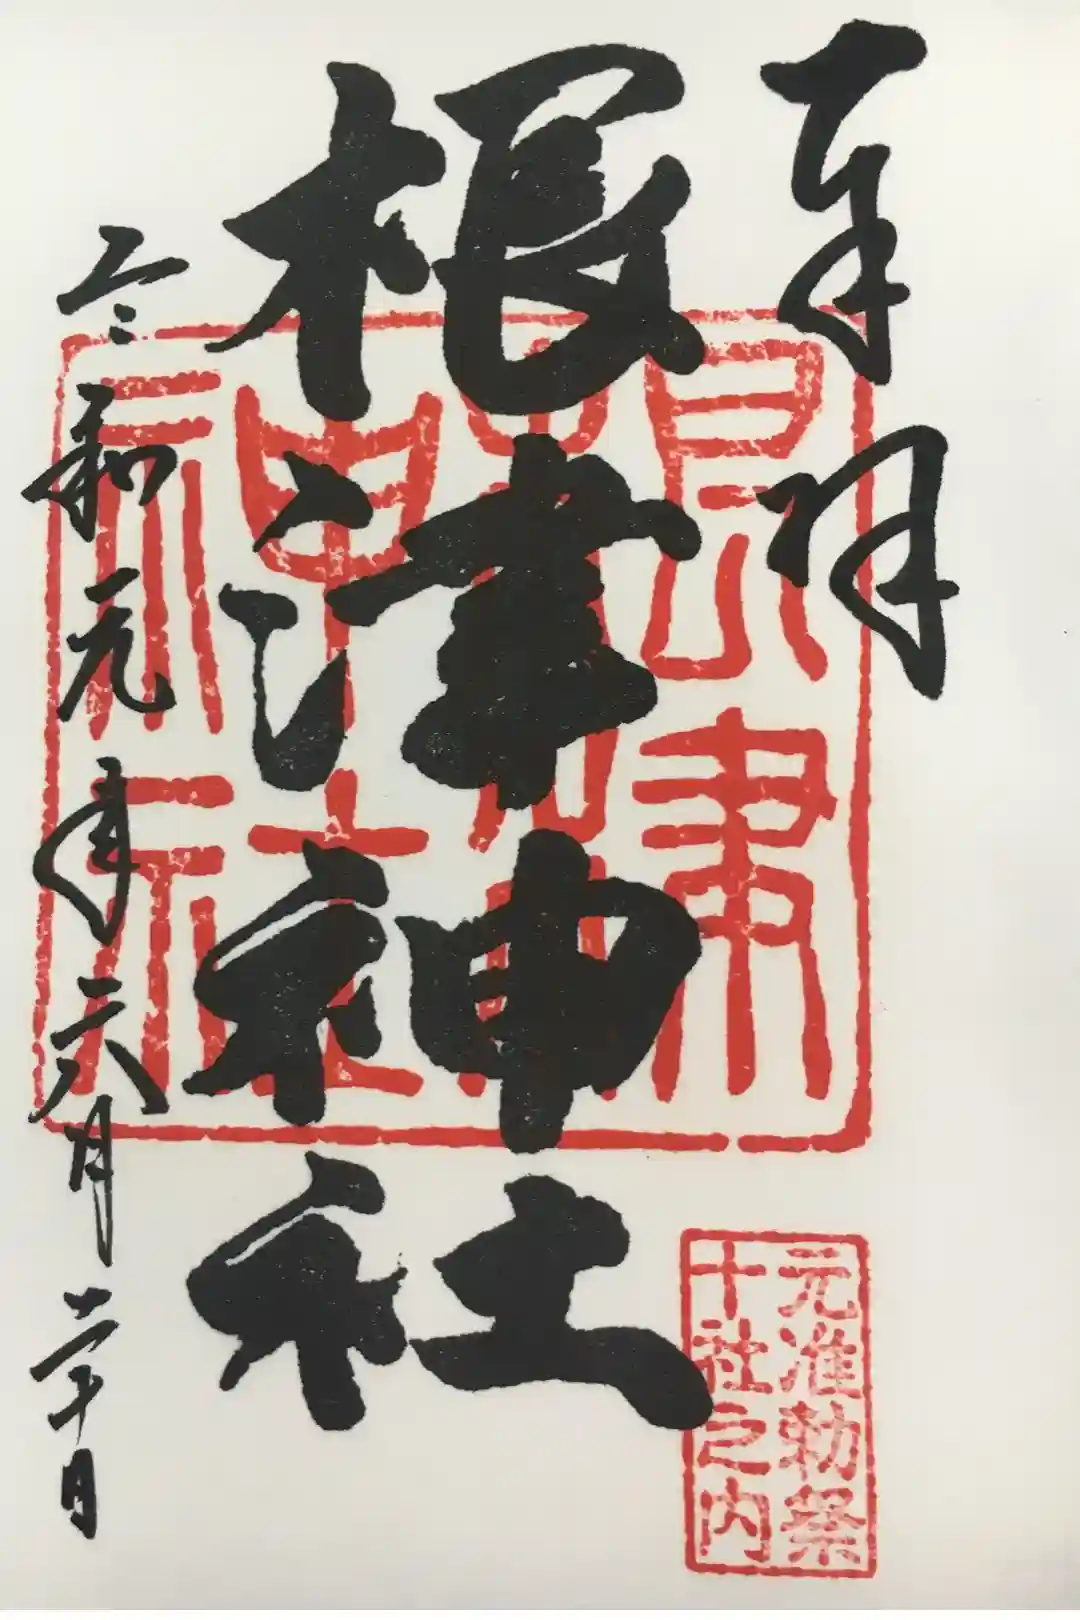 奉拝
根津神社
令和元年六月二十日
根津
神社
元准勅祭
十社之内